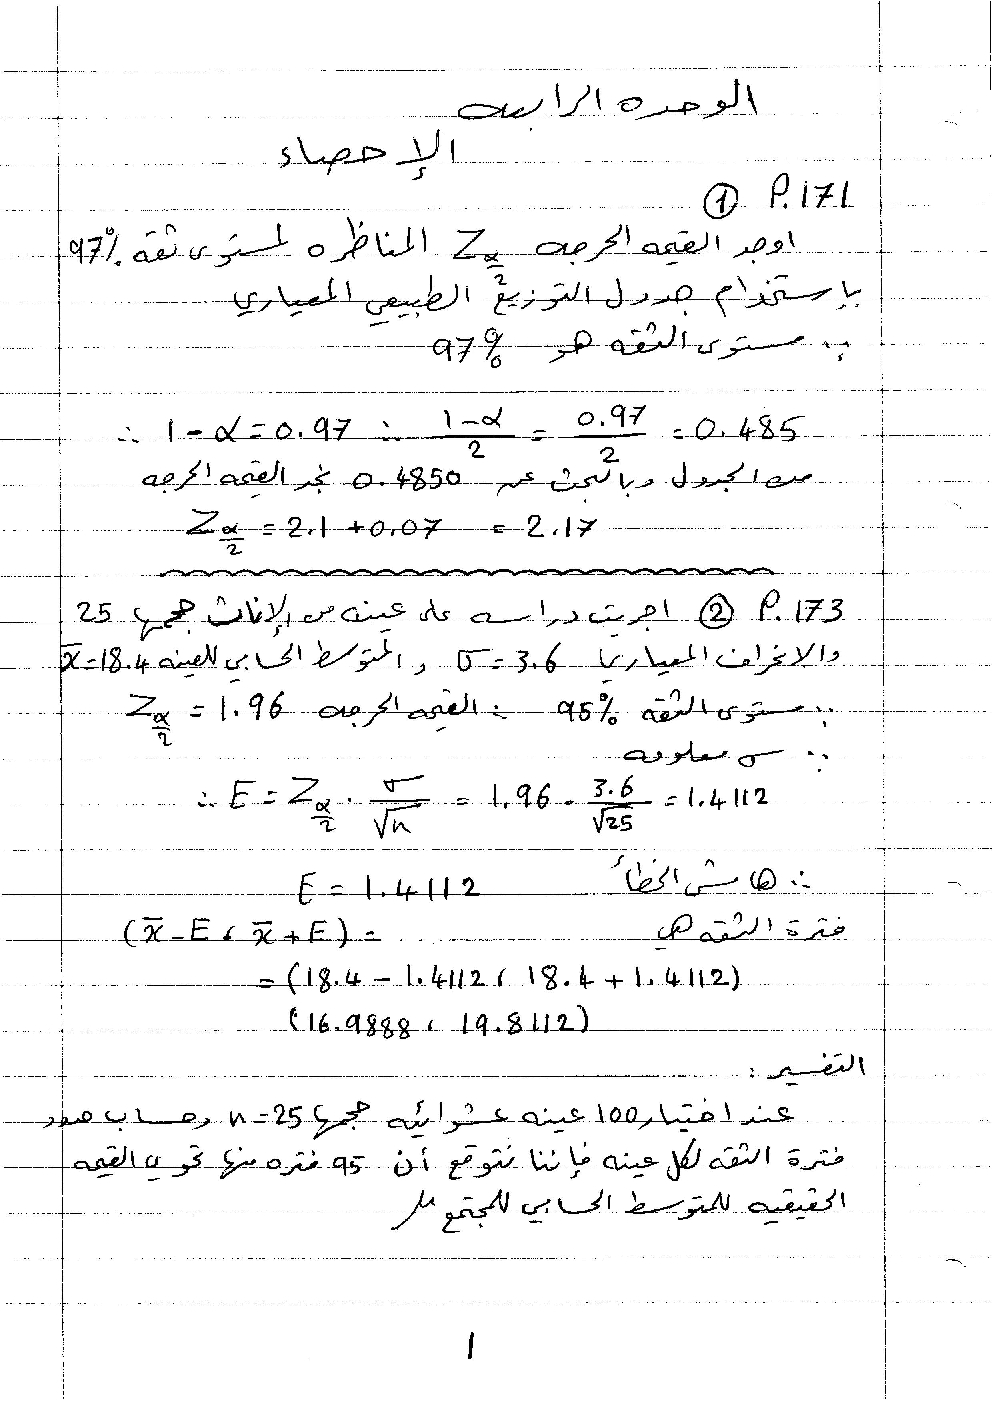 الوحده الرابعه
الإحصاء
P.171 ①
اوجد القيمه الحرجه Zα/2 المناظره لمستوى ثقه 97%
بإستخدام جدول التوزيع الطبيعي المعياري
∵ مستوى الثقه هو 97%
∴ 1-α=0.97 ∴ (1-α)/2 = 0.97/2 = 0.485
من الجدول وبالبحث عن 0.4850 نجد القيمه الحرجه
Zα/2 = 2.1 + 0.07 = 2.17
P.173 ② اجريت دراسه على عينه من الإناث حجمها 25
والانحراف المعياري σ = 3.6 والمتوسط الحسابي للعينه x̄=18.4
∵ مستوى الثقه 95% ∴ القيمه الحرجه Zα/2 = 1.96
∵ σ معلومه
∴ E = Zα/2 . σ/√n = 1.96 . 3.6/√25 = 1.4112
∴ هامش الخطأ E = 1.4112
فترة الثقه هي = (x̄-E ، x̄+E)
= (18.4 - 1.4112 ، 18.4 + 1.4112)
(16.9888 ، 19.8112)
التفسير :
عند اختيار 100 عينه عشوائيه حجمها n=25 وحساب حدود
فترة الثقه لكل عينه فإننا نتوقع أن 95 فتره منها تحوي القيمه
الحقيقيه للمتوسط الحسابي للمجتمع μ
1